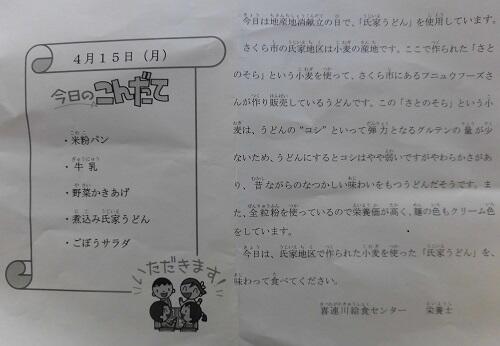 4月15日（月）
今日のこんだて
・米粉パン
・牛乳
・野菜かきあげ
・煮込み氏家うどん
・ごぼうサラダ
いただきます!
今日は地産地消献立の日で、「氏家うどん」を使用しています。
さくら市の氏家地区は小麦の産地です。ここで作られた「さと
のそら」という小麦を使って、さくら市にあるフニュウフーズさ
んが作り販売しているうどんです。この「さとのそら」という小
麦は、うどんの“コシ”といって弾力となるグルテンの量が少
ないため、うどんにするとコシはやや弱いですがやわらかさがあ
り、昔ながらのなつかしい味わいをもつうどんだそうです。ま
た、全粒粉を使っているので栄養価が高く、麺の色もクリーム色
をしています。
今日は、氏家地区で作られた小麦を使った「氏家うどん」を、
味わって食べてください。
喜連川給食センター　栄養士